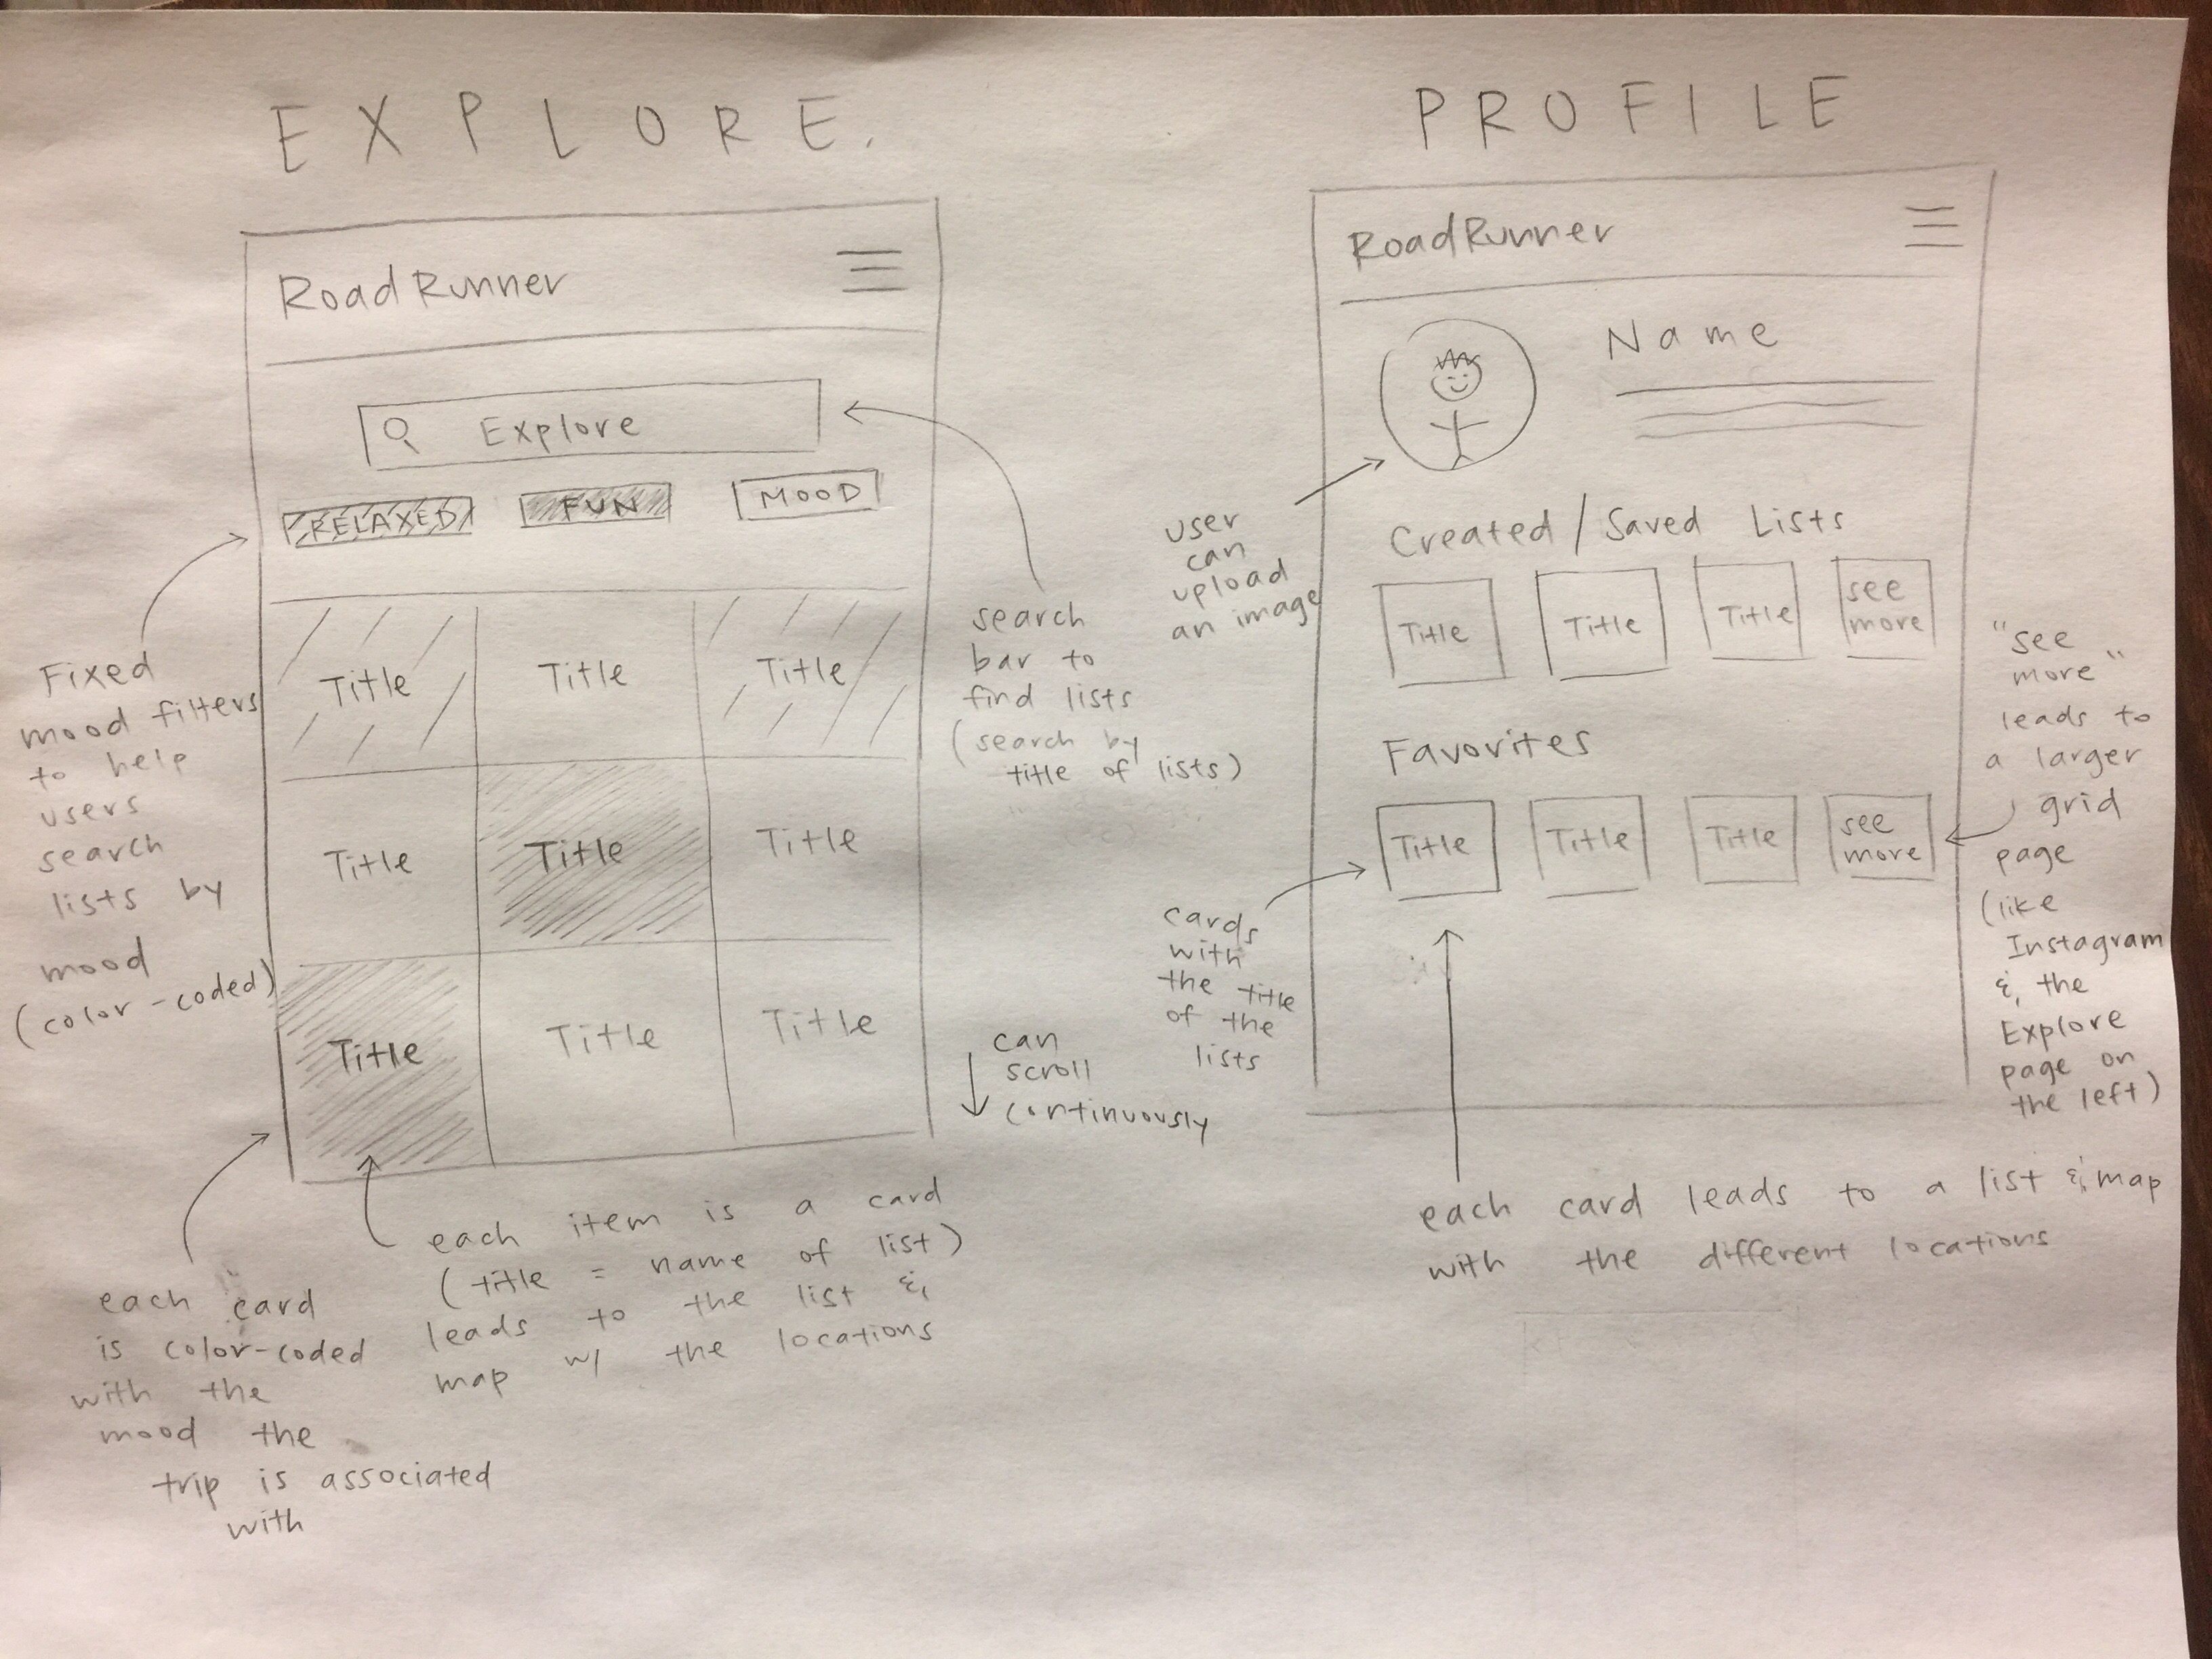 EXPLORE.
RoadRunner
Explore
RELAXED
FUN
MOOD
Title
Title
Title
Title
Title
Title
Title
Title
Title
Fixed
mood filters
to help
users
search
lists by
mood
(color-coded)
search
bar to
find lists
(search by
title of lists)
can
scroll
continuously
each card
is color-coded
with the
mood the
trip is associated
with
each item is a card
(title = name of list)
leads to the list &
map w/ the locations
PROFILE
RoadRunner
Name
user
can
upload
an image
Created/Saved Lists
Title
Title
Title
see
more
Favorites
Title
Title
Title
see
more
cards
with
the title
of the
lists
"see
more"
leads to
a larger
grid
page
(like
Instagram
& the
Explore
page on
the left)
each card leads to a list & map
with the different locations